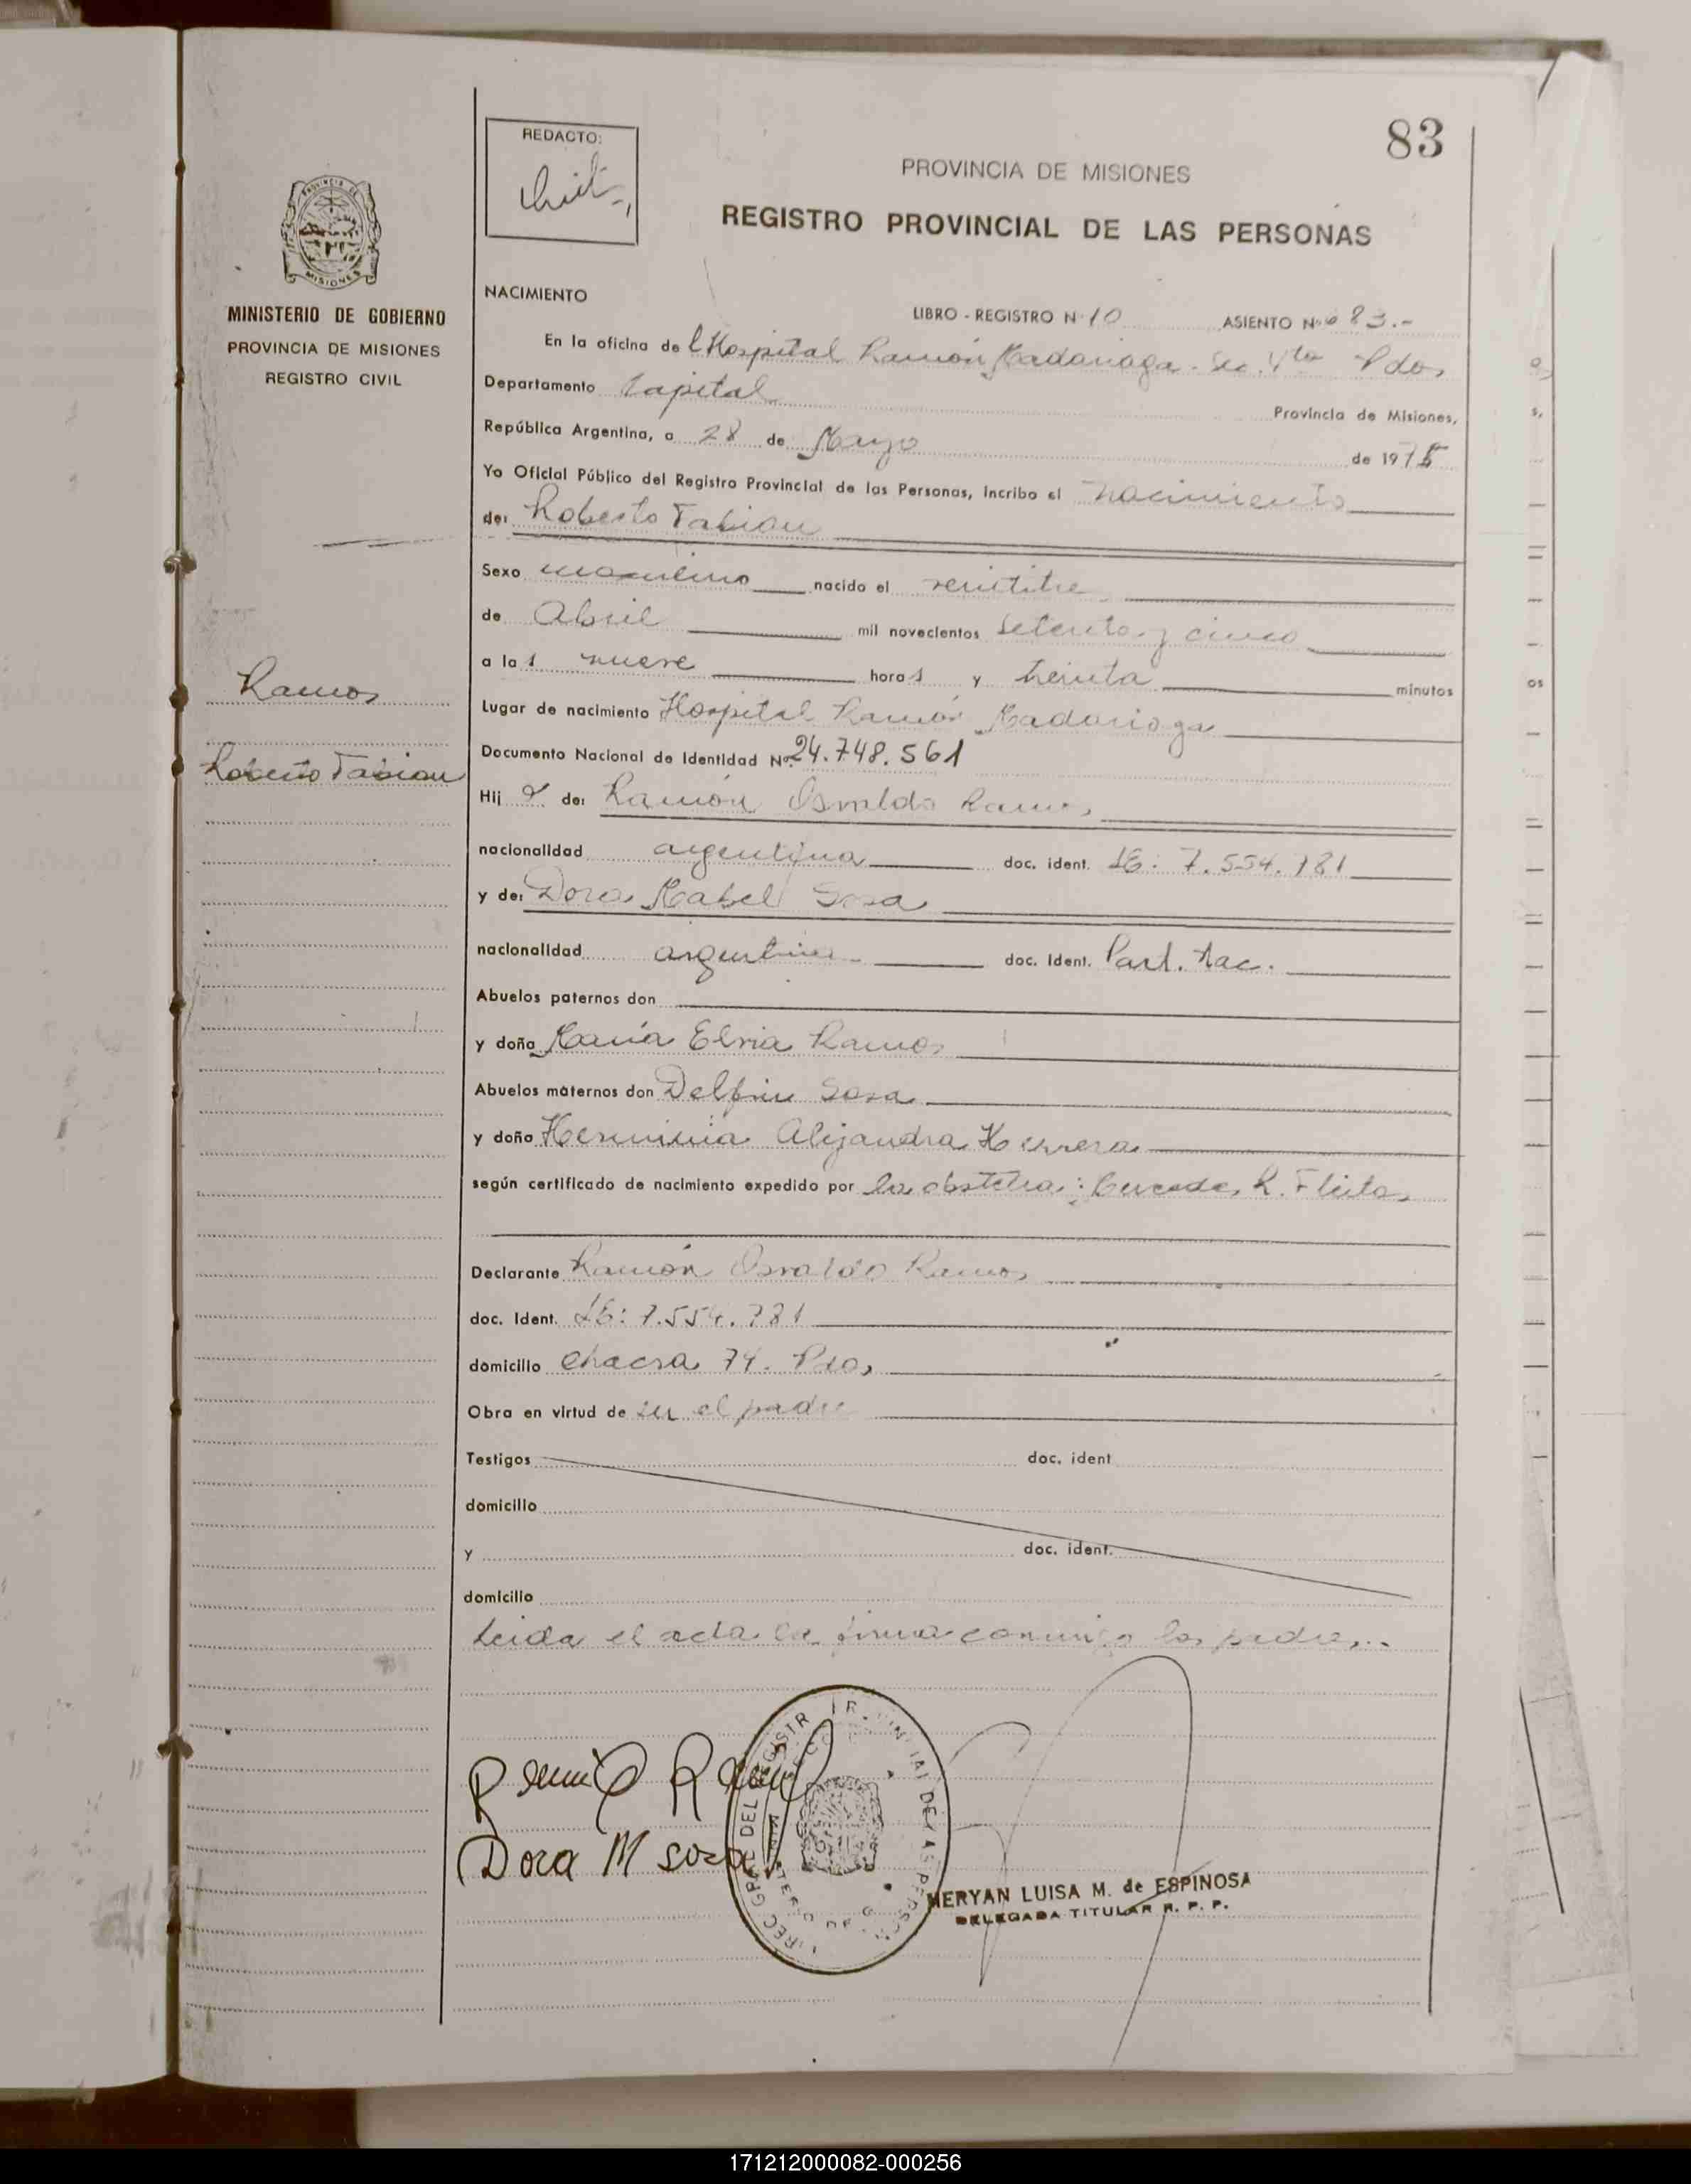 83
REDACTO:
PROVINCIA DE MISIONES
REGISTRO PROVINCIAL DE LAS PERSONAS
PROVINCIA DE
MISIONES
MINISTERIO DE GOBIERNO
PROVINCIA DE MISIONES
REGISTRO CIVIL
NACIMIENTO
LIBRO - REGISTRO N° 10 ASIENTO N° 83.-
En la oficina del Hospital Ramón Madariaga. Sec. Vta Pdas
Departamento Capital Provincia de Misiones,
República Argentina, a 28 de Mayo de 1975
Yo Oficial Público del Registro Provincial de las Personas, incribo el nacimiento
de: Roberto Fabian
Sexo masculino nacido el veintitre
de Abril mil novecientos setenta y cinco
a las nueve horas y treinta minutos
Ramos
Lugar de nacimiento Hospital Ramón Madariaga
Roberto Fabian
Documento Nacional de Identidad N° 24.748.561
Hijo de: Ramón Osvaldo Ramos
nacionalidad argentina doc. ident. LE: 7.554.781
y de: Dora Mabel Sosa
nacionalidad argentina doc. ident. Part. Nac.
Abuelos paternos don
y doña María Elvia Ramos
Abuelos maternos don Delfin Sosa
y doña Herminia Alejandra Herrera
según certificado de nacimiento expedido por la obstetra: R. Fleitas
Declarante Ramón Osvaldo Ramos
doc. Ident. LE: 7.554.781
domicilio chacra 74. Pdas
Obra en virtud de ser el padre
Testigos doc. ident
domicilio
y doc. ident.
domicilio
Leida el acta la firma conmigo los padres..
Ramos
Dora M sosa
MERYAN LUISA M. de ESPINOSA
DELEGADA TITULAR R. P. P.
171212000082-000256